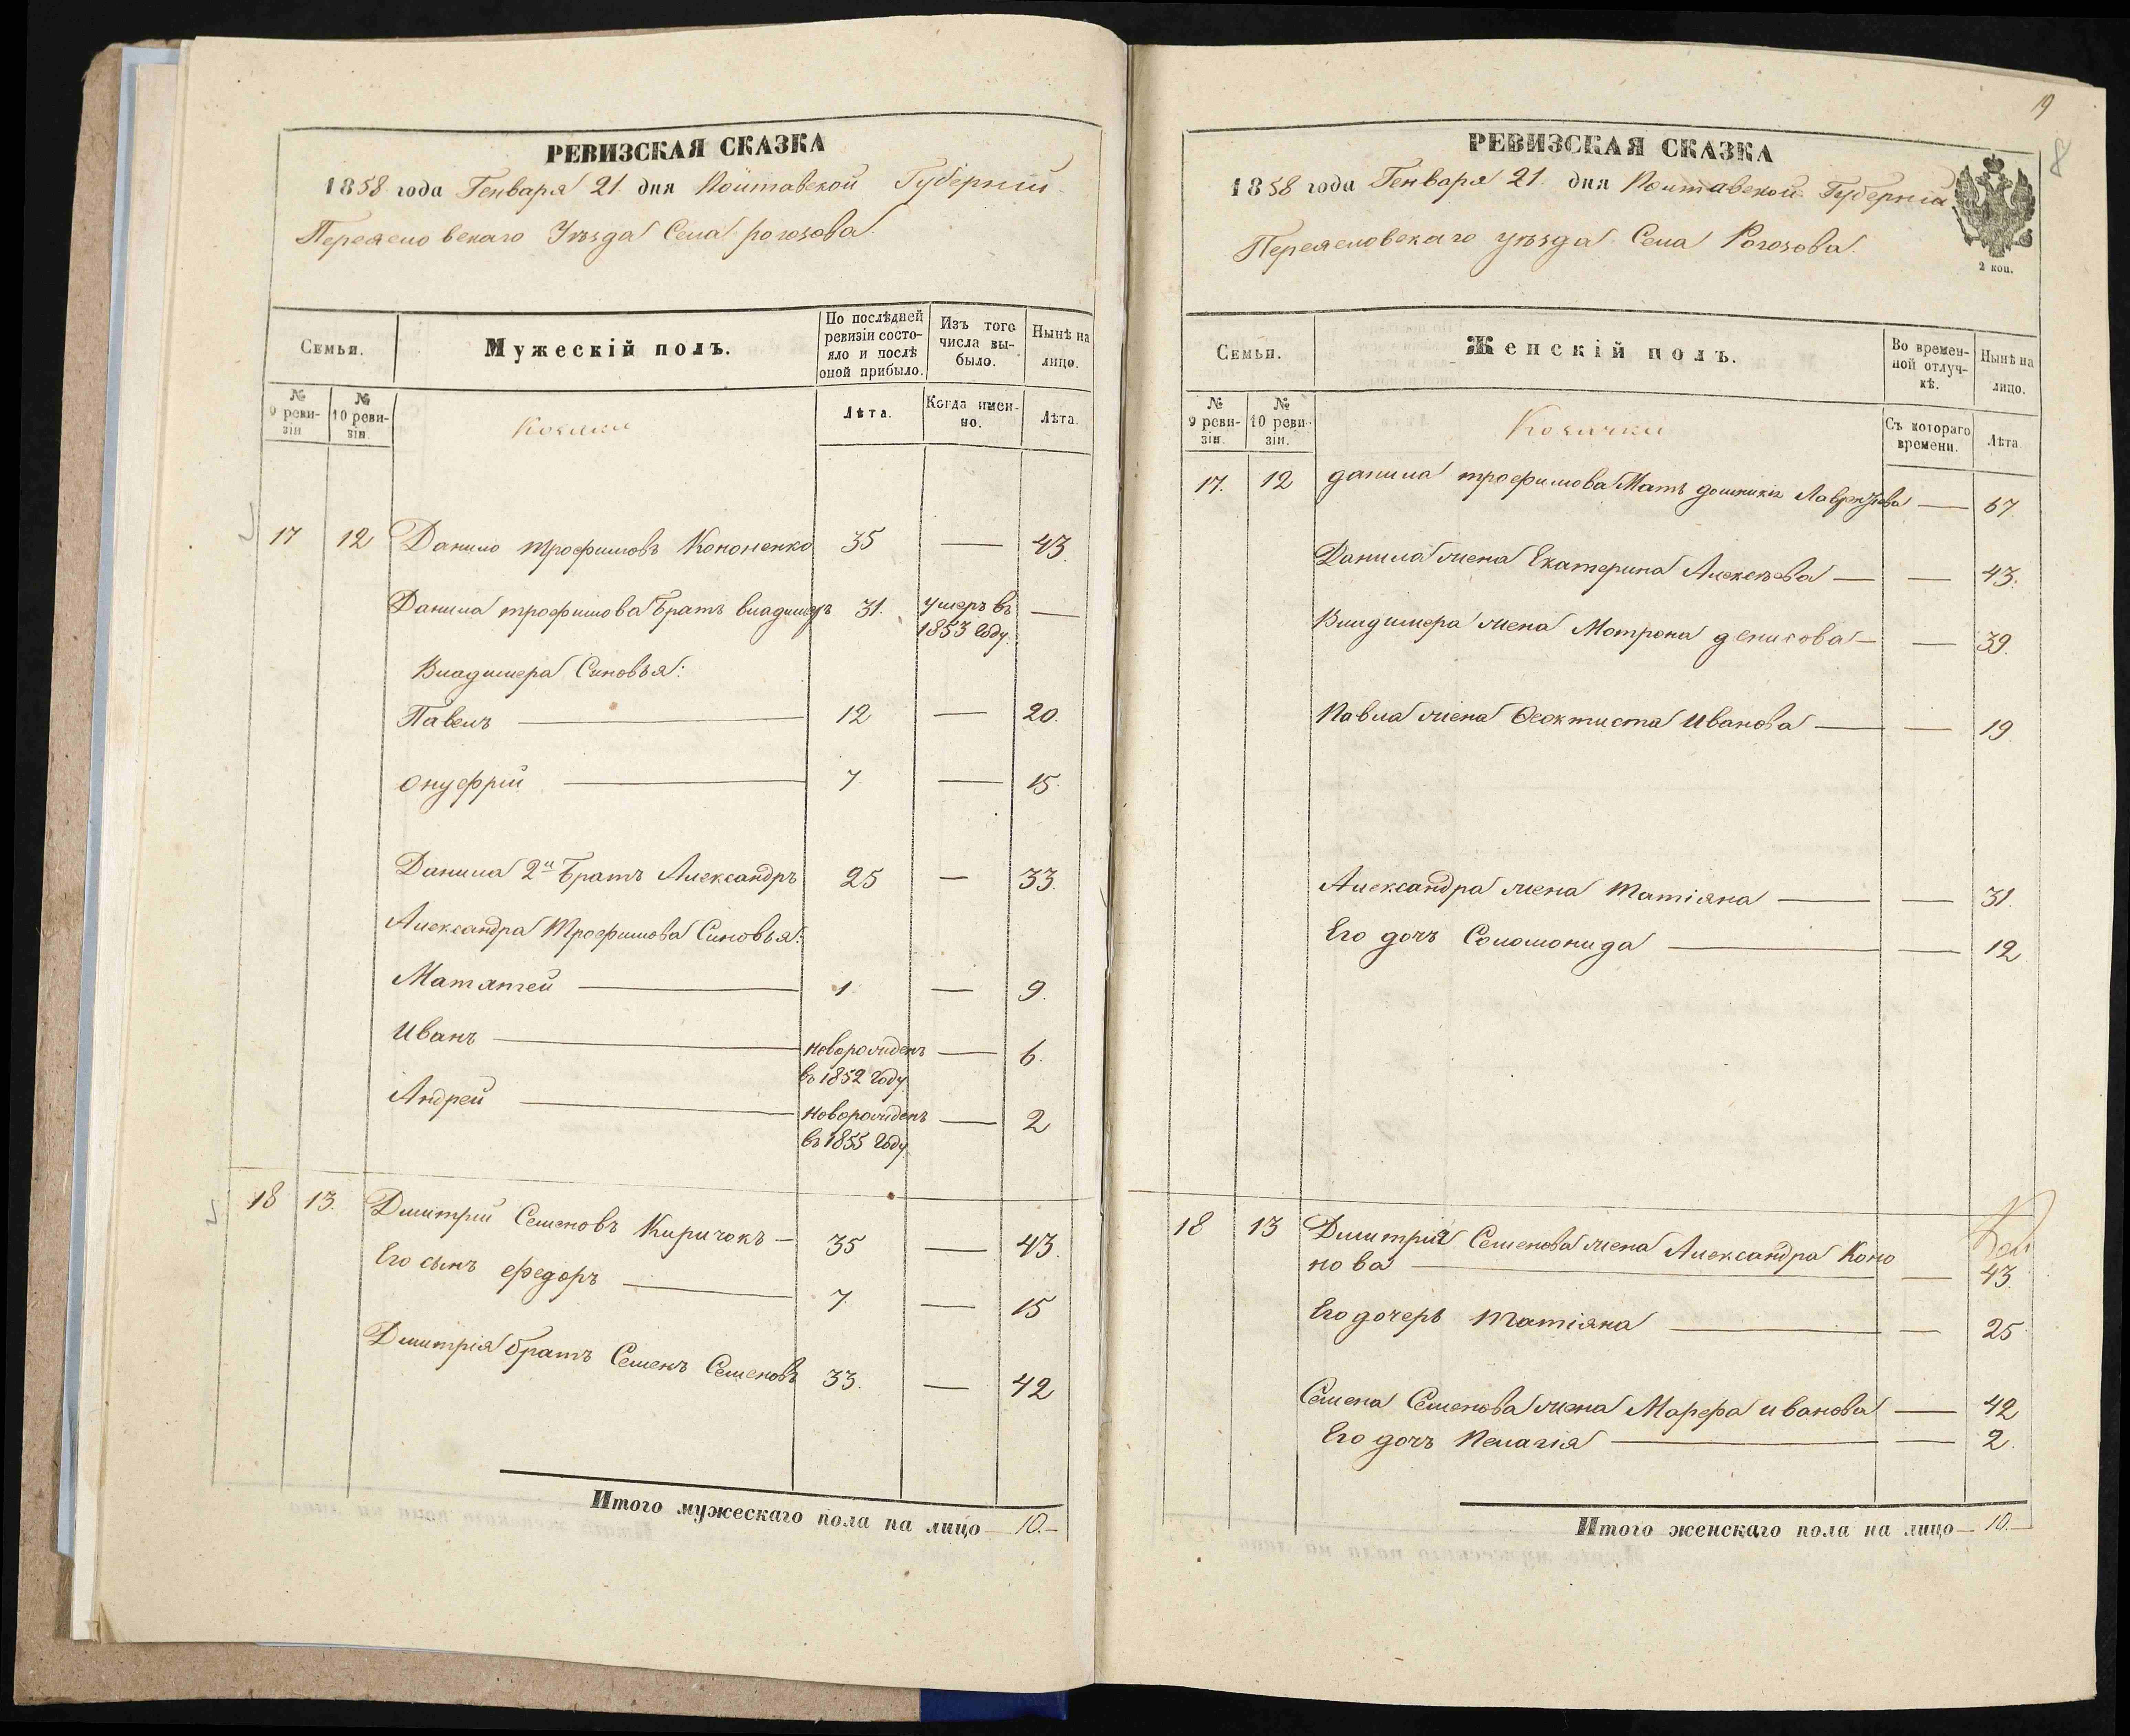 РЕВИЗСКАЯ СКАЗКА
1858 года Генваря 21. дня Полтавской Губернии
Переясловскаго Уѣзда Села рогозова.
Семьи.
Мужескій полъ.
По послѣдней ревизіи состояло и послѣ оной прибыло.
Изъ того числа выбыло.
Нынѣ на лицо.
№ 9 ревизіи
№ 10 ревизіи.
Козаки
Лѣта.
Когда именно.
Лѣта.
17 12 Данило трофимовъ Кононенко 35 — 43.
Данила трофимова братъ владимеръ 31. умеръ въ —
1853 году.
Владимера Синовья:
Павелъ — 12 — 20.
Онуфрій — 7 — 15.
Данила 2й братъ Александръ 25 — 33.
Александра Трофимова Синовья:
Мататей — 1 — 9.
Иванъ — новорожденъ — 6.
въ 1852 году
Андрей — новорожденъ — 2
въ 1855 году.
18 13. Дмитрій Семеновъ Киричокъ — 35 — 43.
Его сынъ ѳедоръ — 7. — 15
Дмитрія братъ Семенъ Семеновъ 33. — 42
Итого мужескаго пола на лицо — 10. —
19
8
РЕВИЗСКАЯ СКАЗКА
1858 года Генваря 21. дня Полтавской Губерніи
Переясловскаго уѣзда Села Рогозова.
2 коп.
Семьи.
Женскій полъ.
Во временной отлучкѣ.
Нынѣ на лицо.
№ 9 ревизіи.
№ 10 ревизіи.
Козачки
Съ котораго времени.
Лѣта
17. 12 данила трофимова Мать — 67.
Данила жена Екатерина Алексѣева — — 43.
Владимера жена Мотрона денисова — — 39.
Павла жена Ѳеоктиста Иванова — — 19
Александра жена Татіяна — — 31.
Его дочъ Соломонида — — 12
18 13 Дмитрія Семенова жена Александра Коно
нова — — 43.
Его дочерь Татіяна — — 25
Семена Семенова жена Марфа иванова — 42
Его дочъ Пелагія — — 2.
Итого женскаго пола на лицо — 10. —